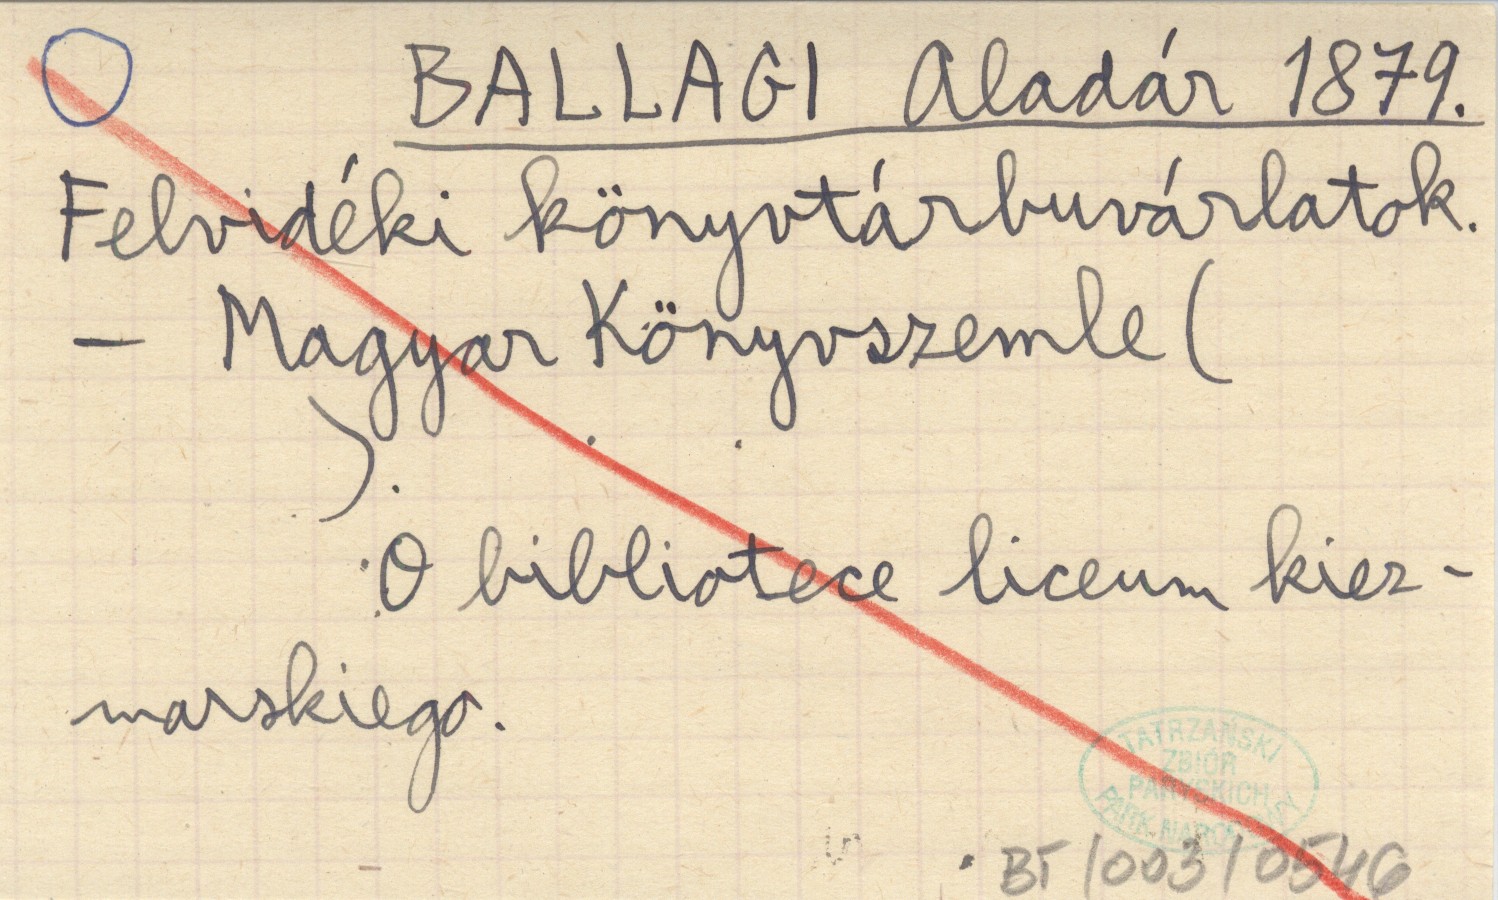 BALLAGI Aladár 1879.
Felvidéki könyvtárbuvárlatok.
— Magyar Könyvszemle (
).
O bibliotece liceum kiez-
marskiego.
TATRZAŃSKI
ZBIÓR
PARYSKICH
PARK NARODOWY
BT/003/0546